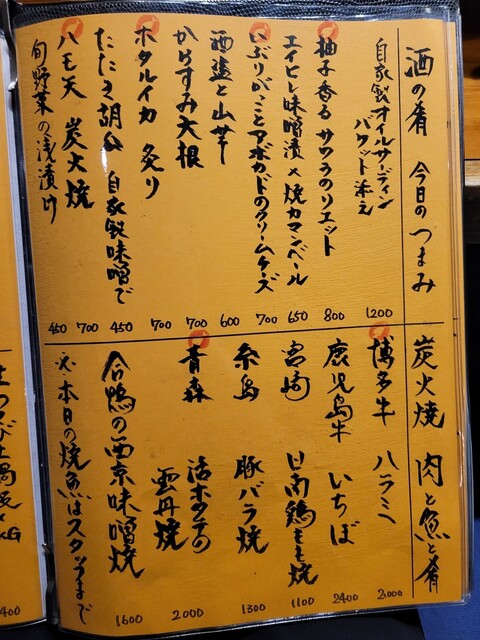 酒の肴 今日のつまみ
自家製オイルサーディン
バケット添え
1200
柚子香るサワラのリエット
800
エイヒレ味噌漬×焼カマンベール
650
いぶりがっことアボカドのクリームチーズ
700
酒盗と山芋
600
からすみ大根
700
ホタルイカ 炙り
700
たたき胡瓜 自家製味噌で
450
ハモ天 炭火焼
700
旬野菜の浅漬け
450
炭火焼 肉と魚と肴
博多牛 ハラミ
2,000
鹿児島牛 いちぼ
2400
宮崎 日南鶏もも焼
1100
糸島 豚バラ焼
1300
青森 活ホタテの
雲丹焼
2000
合鴨の西京味噌焼
1600
※本日の焼魚はスタッフまで
400